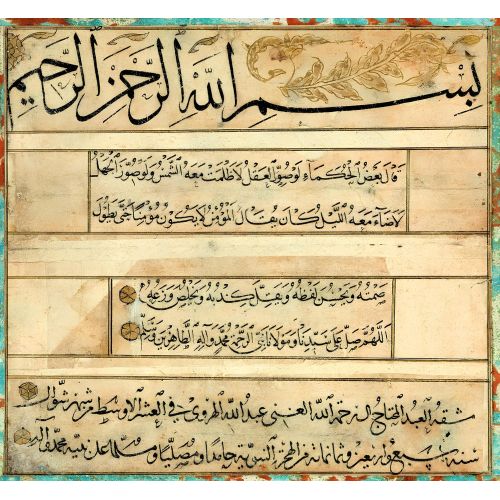 بسم الله الرحمن الرحيم
قال بعض الحكماء لو صور العقل لاظلمت معه الشمس ولو صور الجهل
لاضاء معه الليل كان يقال المؤمن لا يكون مؤمنا حتى يطول
صمته ويحسن لفظه ويقل كذبه ويخلص ورعه
اللهم صل على سيدنا ومولانا نبي الرحمة محمد وآله الطاهرين وسلم
مشقه العبد المحتاج الى رحمة الله الغني عبد الله الهروي في العشر الاوسط من شهر شوال
سنة سبع واربعين وثمانماية من الهجرة النبوية حامدا ومصليا ومسلما على نبيه محمد وآله